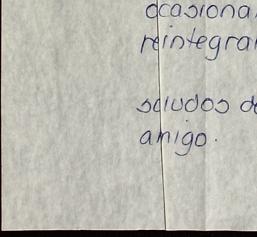 ocasiona
reintegra
saludos de
amigo.